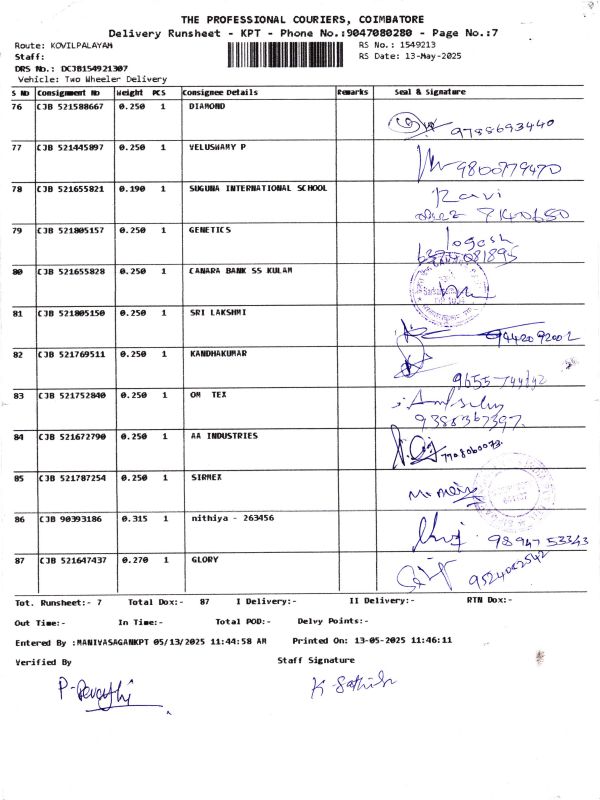 THE PROFESSIONAL COURIERS, COIMBATORE
Delivery Runsheet - KPT - Phone No.:9047080280 - Page No.:7
Route: KOVILPALAYAM RS No.: 1549213
Staff: RS Date: 13-May-2025
DRS No.: DCJB154921307
Vehicle: Two Wheeler Delivery
S No Consignment No Weight PCS Consignee Details Remarks Seal & Signature
76 CJB 521588667 0.250 1 DIAMOND
9788693440
77 CJB 521445897 0.250 1 VELUSWAMY P
9800779470
78 CJB 521655821 0.190 1 SUGUNA INTERNATIONAL SCHOOL Ravi
79 CJB 521805157 0.250 1 GENETICS logesh
6374081895
80 CJB 521655828 0.250 1 CANARA BANK SS KULAM
81 CJB 521805150 0.250 1 SRI LAKSHMI
9442092002
82 CJB 521769511 0.250 1 KANDHAKUMAR
83 CJB 521752840 0.250 1 OM TEX
9388367397.
84 CJB 521672790 0.250 1 AA INDUSTRIES
7708060073.
85 CJB 521787254 0.250 1 SIRMEX
86 CJB 90393186 0.315 1 nithiya - 263456
98947 53343
87 CJB 521647437 0.270 1 GLORY
9524062542
Tot. Runsheet:- 7 Total Dox:- 87 I Delivery:- II Delivery:- RTN Dox:-
Out Time:- In Time:- Total POD:- Delvy Points:-
Entered By :MANIVASAGANKPT 05/13/2025 11:44:58 AM Printed On: 13-05-2025 11:46:11
Verified By Staff Signature
P-Revathi K-Sathish